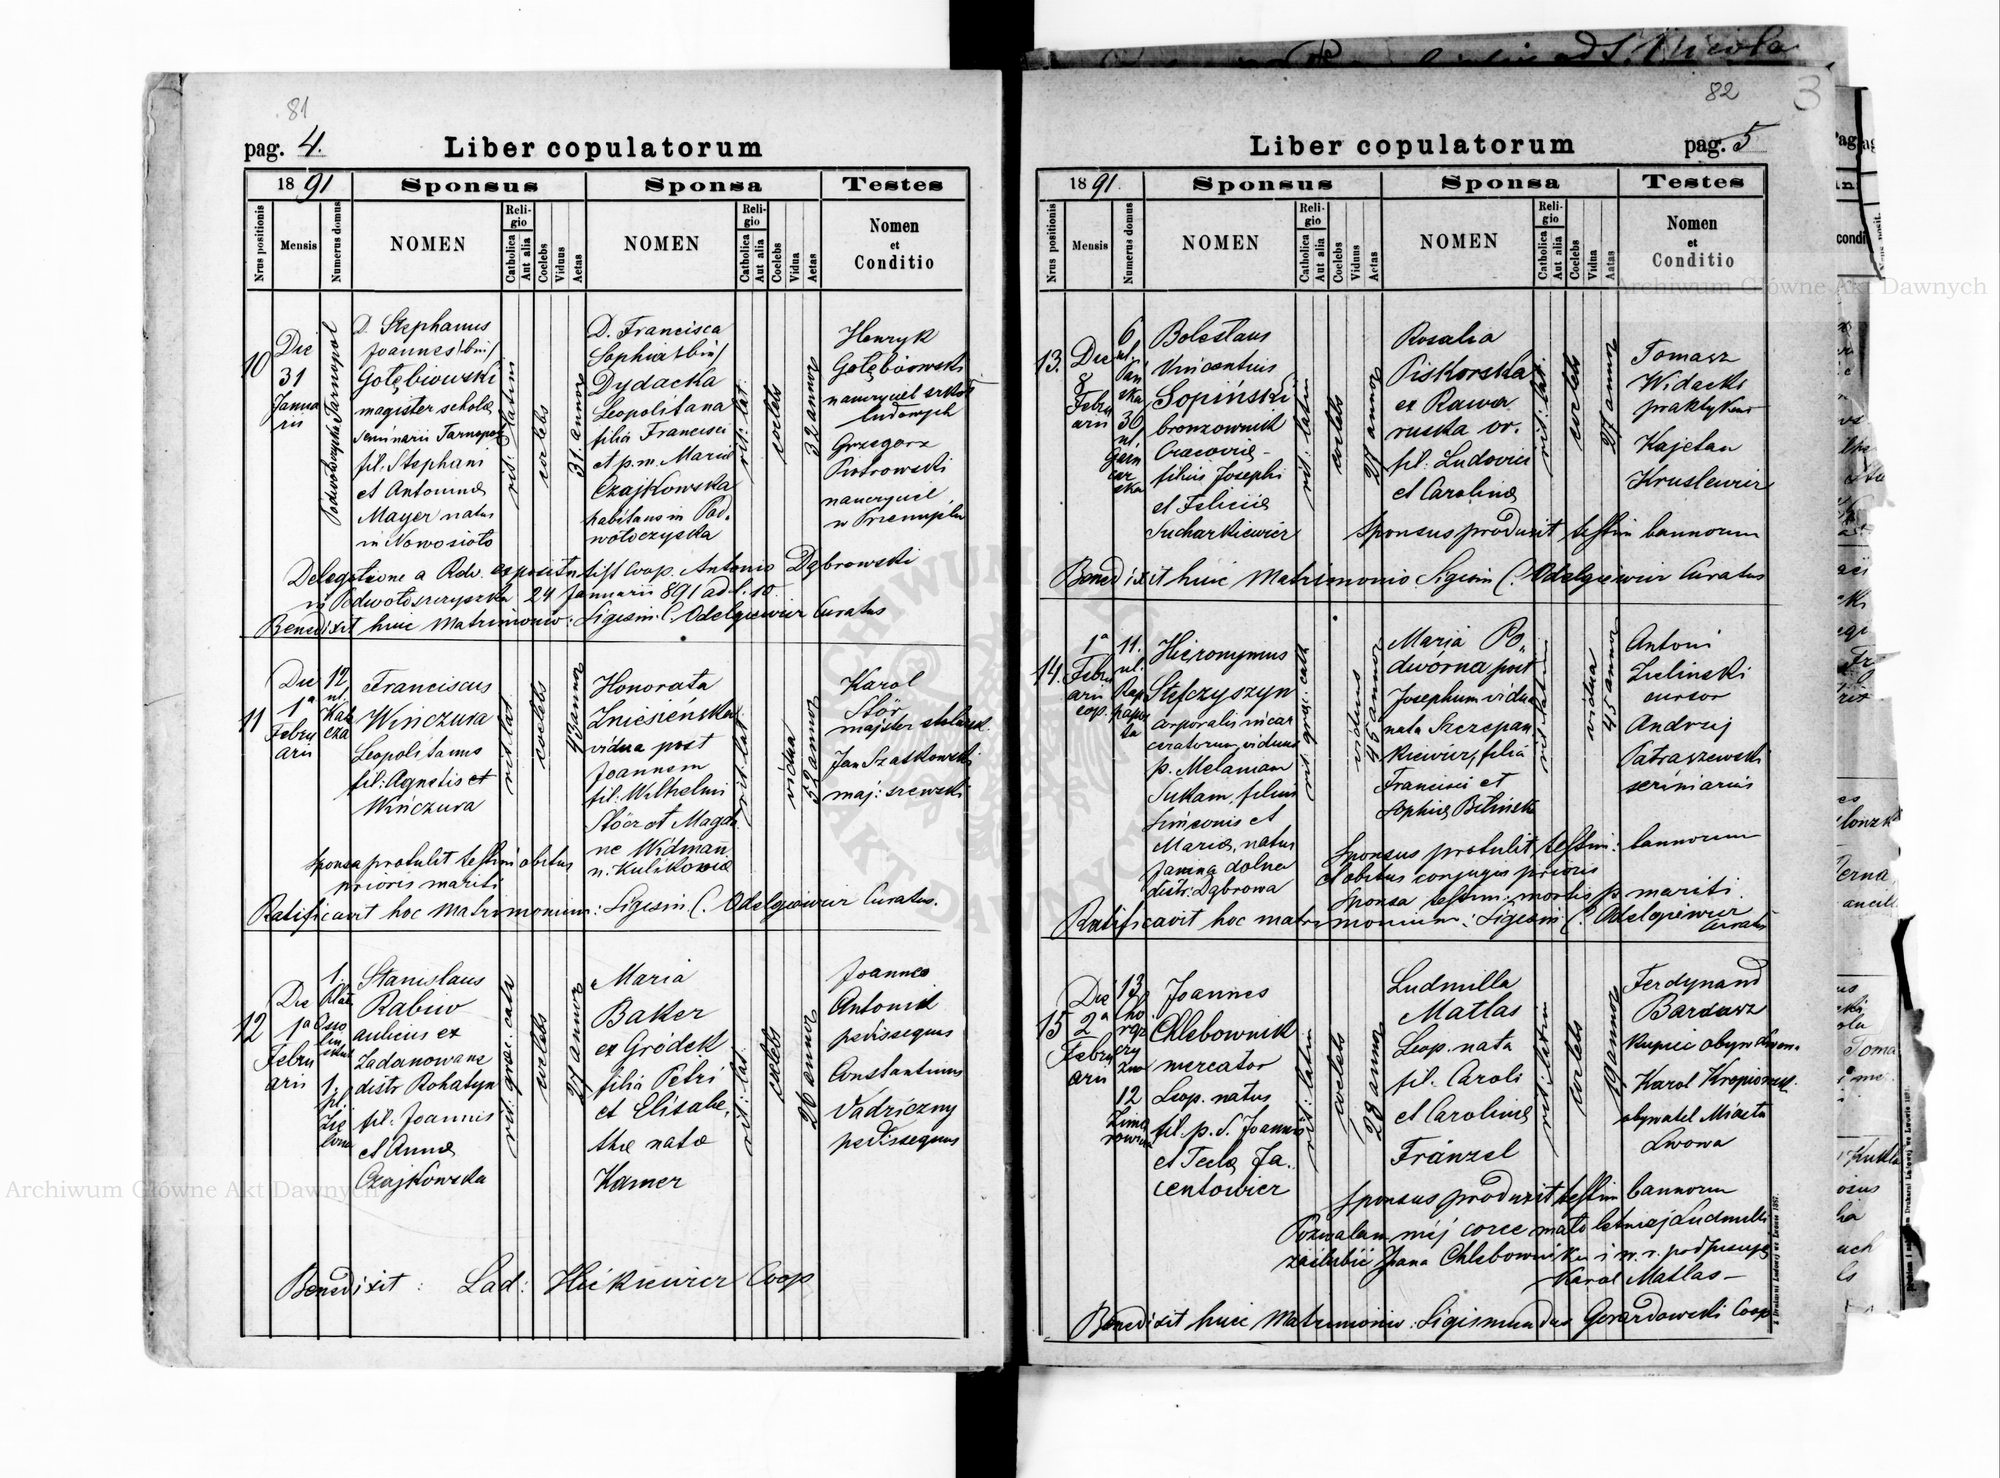 81
pag. 4.
Liber copulatorum
1891
Sponsus
Sponsa
Testes
Nrus positionis
Mensis
Numerus domus
NOMEN
Religio
Catholica
Aut alia
Coelebs
Viduus
Aetas
NOMEN
Religio
Catholica
Aut alia
Coelebs
Vidua
Aetas
Nomen
et
Conditio
10
Die
31
Janua
rii
Podwołoczyska Tarnopol
D. Stephanus
Joannes /bin/
Gołębiowski
magister scholæ
Seminarii Tarnopol
fil: Stephani
et Antoninæ
Mayer natus
in Nowosioło
rit: latini
coelebs
31 annor
D. Francisca
Sophia /bin/
Dydacka
Leopolitana
filia Francisci
et p.m. Mariæ
Czajkowska
habitans in Pod„
wołoczyska
rit: lat:
coelebs
32 annor
Henryk
Gołębiowski
nauczyciel szkół
ludowych
Grzegorz
Piotrowski
nauczyciel
w Przemyślu
Delegatione a Rdv. expositu Coop. Antonio Dąbrowski
in Podwołoczyska 24 Januarii 891 ad l. 10
Benedixit huic Matrimonio: Sigism: C. Odelgiewicz Curatus
11
Die
1ª
Febru
arii
12
ul.
Kal
cza
Franciscus
Winczura
Leopolitanus
fil: Agnetis et
Winczura
rit lat.
coelebs
43 annor
Honorata
Zniesieńska
vidua post
Joannem
fil: Wilhelmi
Stöer et Magda
ne Widman
n. Kulikowiæ
rit. lat
vidua
52 annor
Karol
Stör
majster stolarsk.
Jan Szatkowski
maj: szewski
Sponsa protulit testim obitus
prioris mariti
Ratificavit hoc Matrimonium: Sigism C. Odelgiewicz Curatus.
12
Die
1ª
Febru
arii
1.
Osso
liń
skich
1.
pl.
Zie
lona
Stanislaus
Rabiw
aulicus ex
Zadanowane
distr Rohatyn
fil. Joannis
et Annæ
Czajkowska
rit: græc. cath
coelebs
27 annor
Maria
Baker
ex Gródek
filia Petri
et Elisabe„
thæ natæ
Kamer
rit: lat:
coelebs
26 annor
Joannes
Antonik
pedissequus
Constantinus
Vadriczny
pedissequus
Benedixit: Lad: Hickiewicz Coop
82
3
Liber copulatorum
pag. 5
1891.
Sponsus
Sponsa
Testes
Nrus positionis
Mensis
Numerus domus
NOMEN
Religio
Catholica
Aut alia
Coelebs
Viduus
Aetas
NOMEN
Religio
Catholica
Aut alia
Coelebs
Vidua
Aatas
Nomen
et
Conditio
13.
Die
8
Febru
arii
6
ul.
Pań
ska
30
ul.
Garn
car
ska
Boleslaus
Vincentius
Sopiński
bronzownik
Cracoviæ –
filius Josephi
et Feliciæ
Sucharkiewicz
rit: latin
coelebs
27 annor
Rosalia
Piskorska
ex Rawa
ruska or.
fil: Ludovici
et Carolinæ
rit: lat.
coelebs
27 annor
Tomasz
Widacki
praktykant
Kajetan
Kruslewicz
Sponsus produxit testim bannorum
Benedixit huic Matrimonio Sigism C. Odelgiewicz Curatus
14.
1ª
Febru
arii
cop.
11.
ul.
Rap
papor
ta
Hieronymus
Stefczyszyn
corporalis incar
ceratorum, viduus
p. Melaniam
Sukam, filius
Simeonis et
Mariæ, natus
Janina dolna
distr: Dąbrowa
rit græc: cath
viduus
45 annor
Maria Po„
dwórna post
Josephum vidua
nata Szczepan
kiewicz, filia
Francisci et
Sophiæ Bilinsk
rit latini
vidua
45 annor
Antoni
Zielinski
cursor
Andrzej
Pataszewski
seriniarius
Sponsus protulit testim: bannorum
et obitus conjugis prioris
Sponsa testim: mortis p. mariti
Ratificavit hoc matrimonium: Sigism C. Odelgiewicz
Curatus
15
Die
2ª
Febru
arii
13
12
Zimo
rowicza
Joannes
Chlebownik
mercator
Leop. natus
fil. p. d. Joannis
et Teclæ Ja„
centowicz
rit: latin
coelebs
28 annor
Ludmilla
Matlas
Leop. nata
fil. Caroli
et Carolinæ
Fränzel
rit: latin
coelebs
19 annor
Ferdynand
Bardasz
kupiec obyw. Lwow.
Karol Kropiowsk.
obywatel Miasta
Lwowa
Sponsus produxit testim bannorum
Pozwalam mej corce małoletniej Ludmilli
zaślubić Jana Chlebownika i w. r. podpisuję
Karol Matlas –
Benedixit huic Matrimonio: Sigismundus Gerardowski Coop
Archiwum Główne Akt Dawnych
Archiwum Główne Akt Dawnych